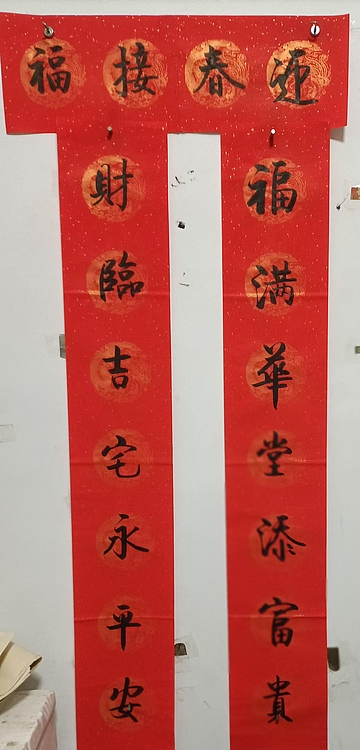 迎春接福
福满華堂添富貴
財臨吉宅永平安